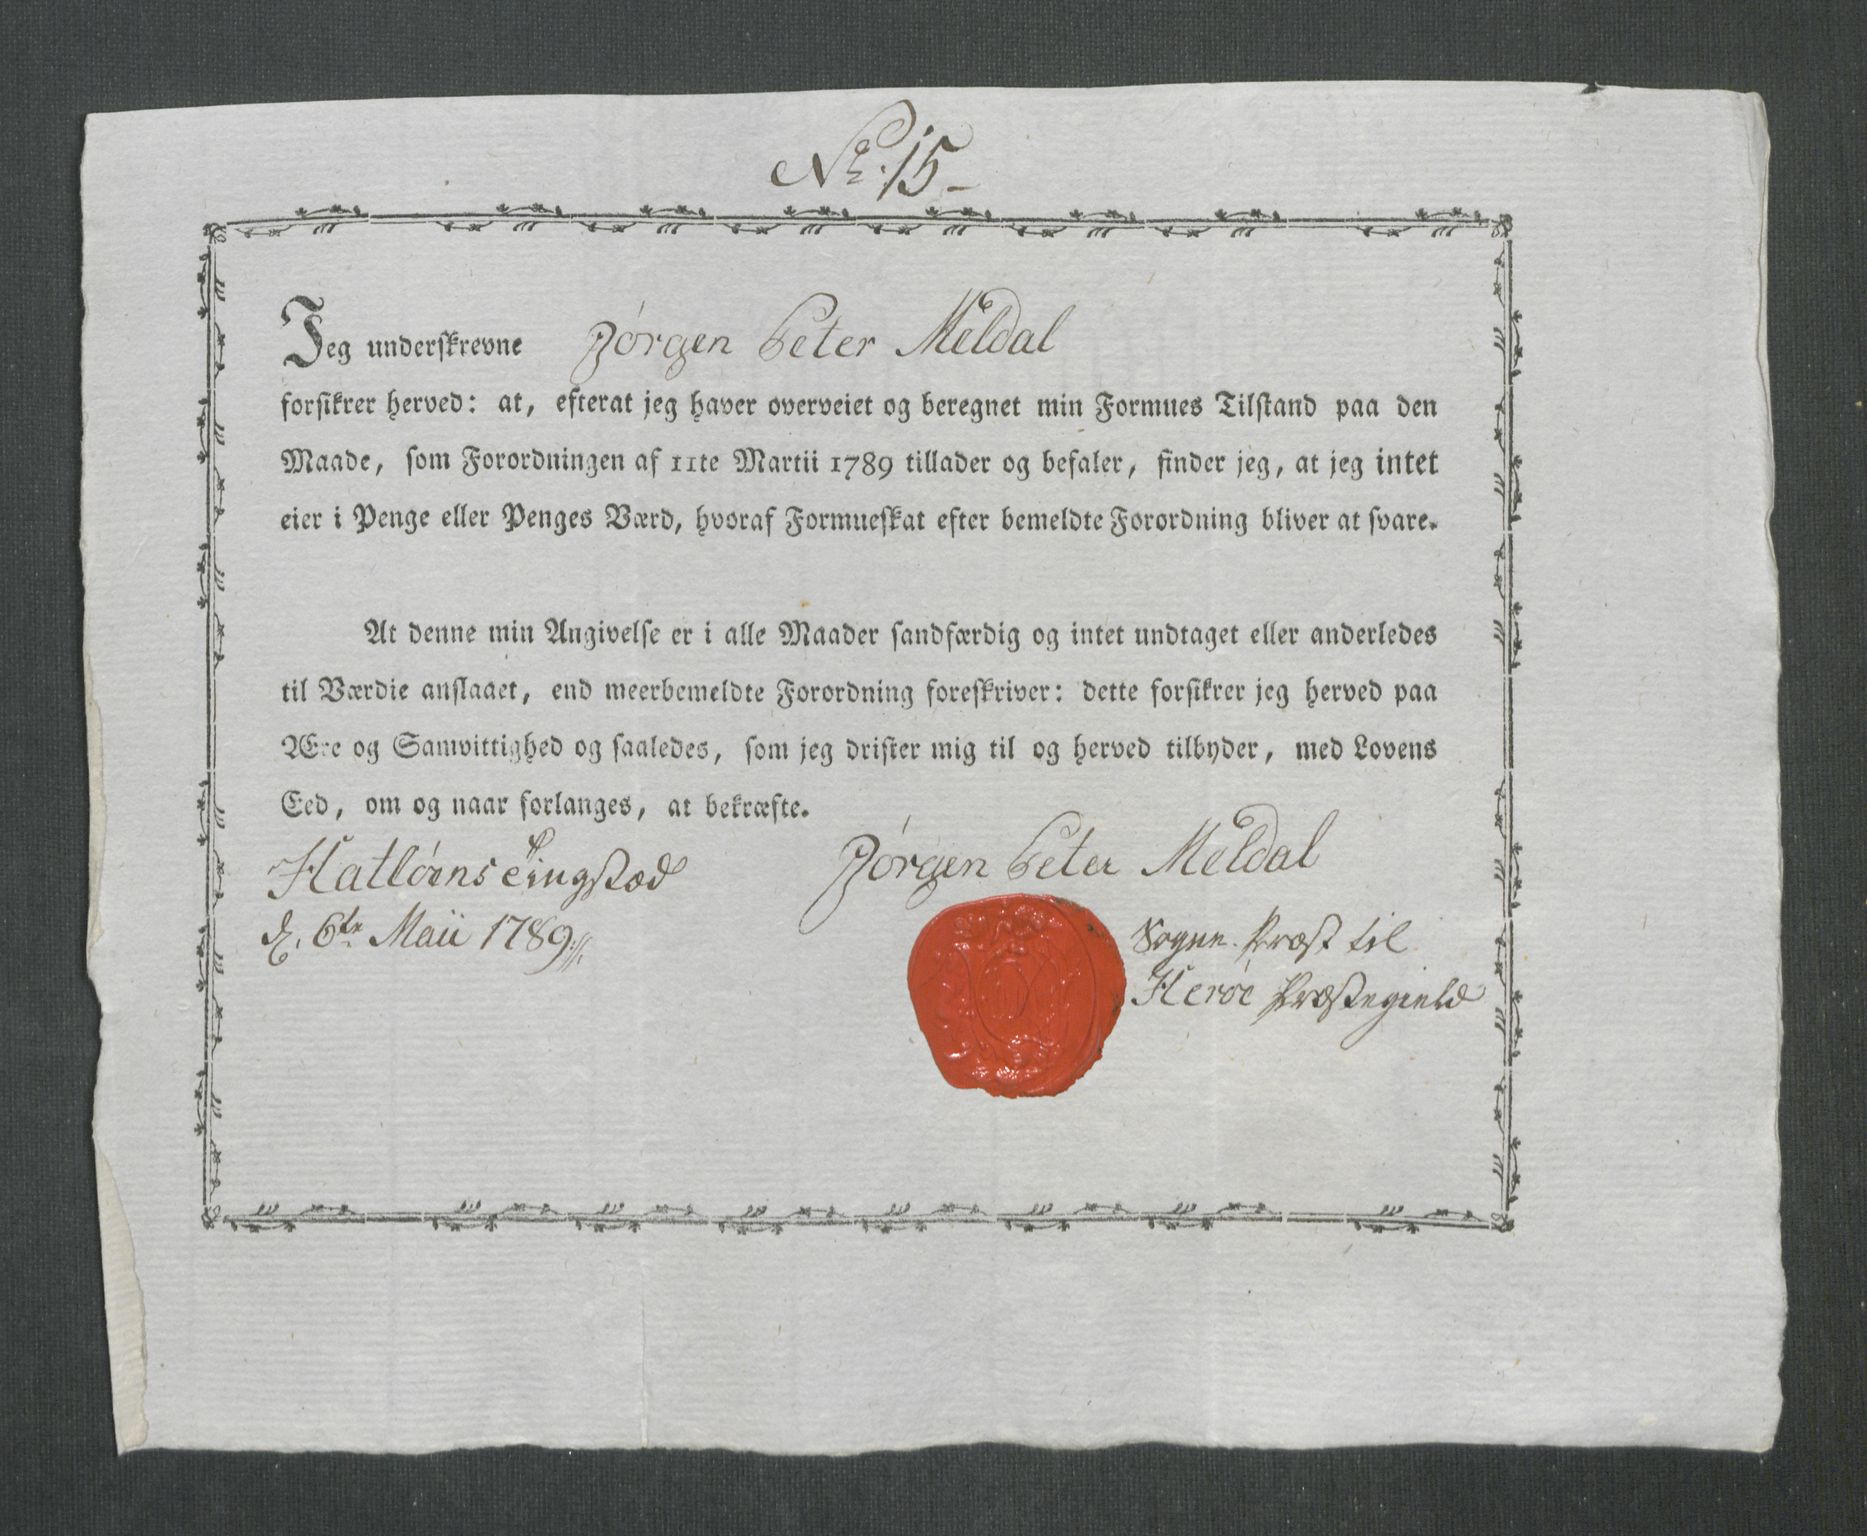 No. 15-
Jeg underskrevne Jørgen Peter Meldal
forsikrer herved: at, efterat jeg haver overveiet og beregnet min Formues Tilstand paa den
Maade, som Forordningen af 11te Martii 1789 tillader og befaler, finder jeg, at jeg intet
eier i Penge eller Penges Værd, hvoraf Formueskat efter bemeldte Forordning bliver at svare.
At denne min Angivelse er i alle Maader sandfærdig og intet undtaget eller anderledes
til Værdie anslaaet, end meerbemeldte Forordning foreskriver: dette forsikrer jeg herved paa
Ære og Samvittighed og saaledes, som jeg drister mig til og herved tilbyder, med Lovens
Eed, om og naar forlanges, at bekræfte.
Hatløens Tingstæd
d. 6te Maii 1789.
Jørgen Peter Meldal
Sogne-Præst til
Herøe Præstegield